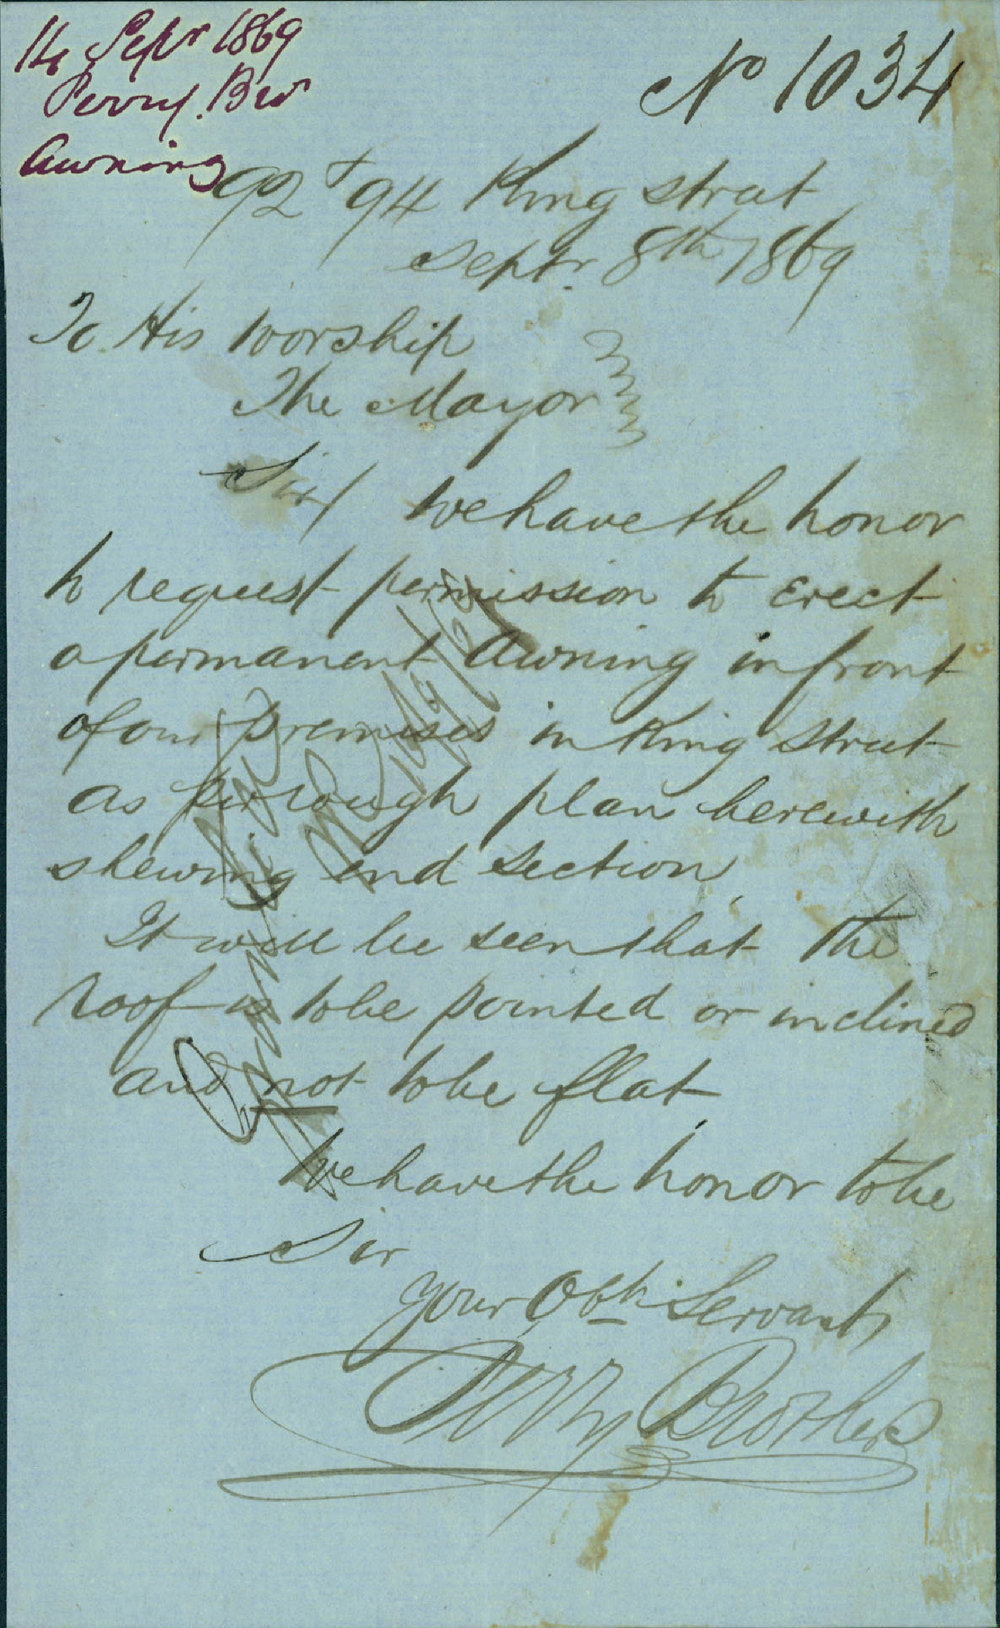 14 Sepr 1869
Perry. Bros
Awning
No 1034
92 + 94 King street
Septr. 8th 1869
To His Worship
The Mayor
Sir/ We have the honor
to request permission to Erect
a permanent Awning in front
of our premises in King Street
as per rough plan herewith
shewing end section
It will be seen that the
roof is to be pointed or inclined
and not to be flat
We have the honor to be
Sir
your Obt. Servants
Perry Brothers